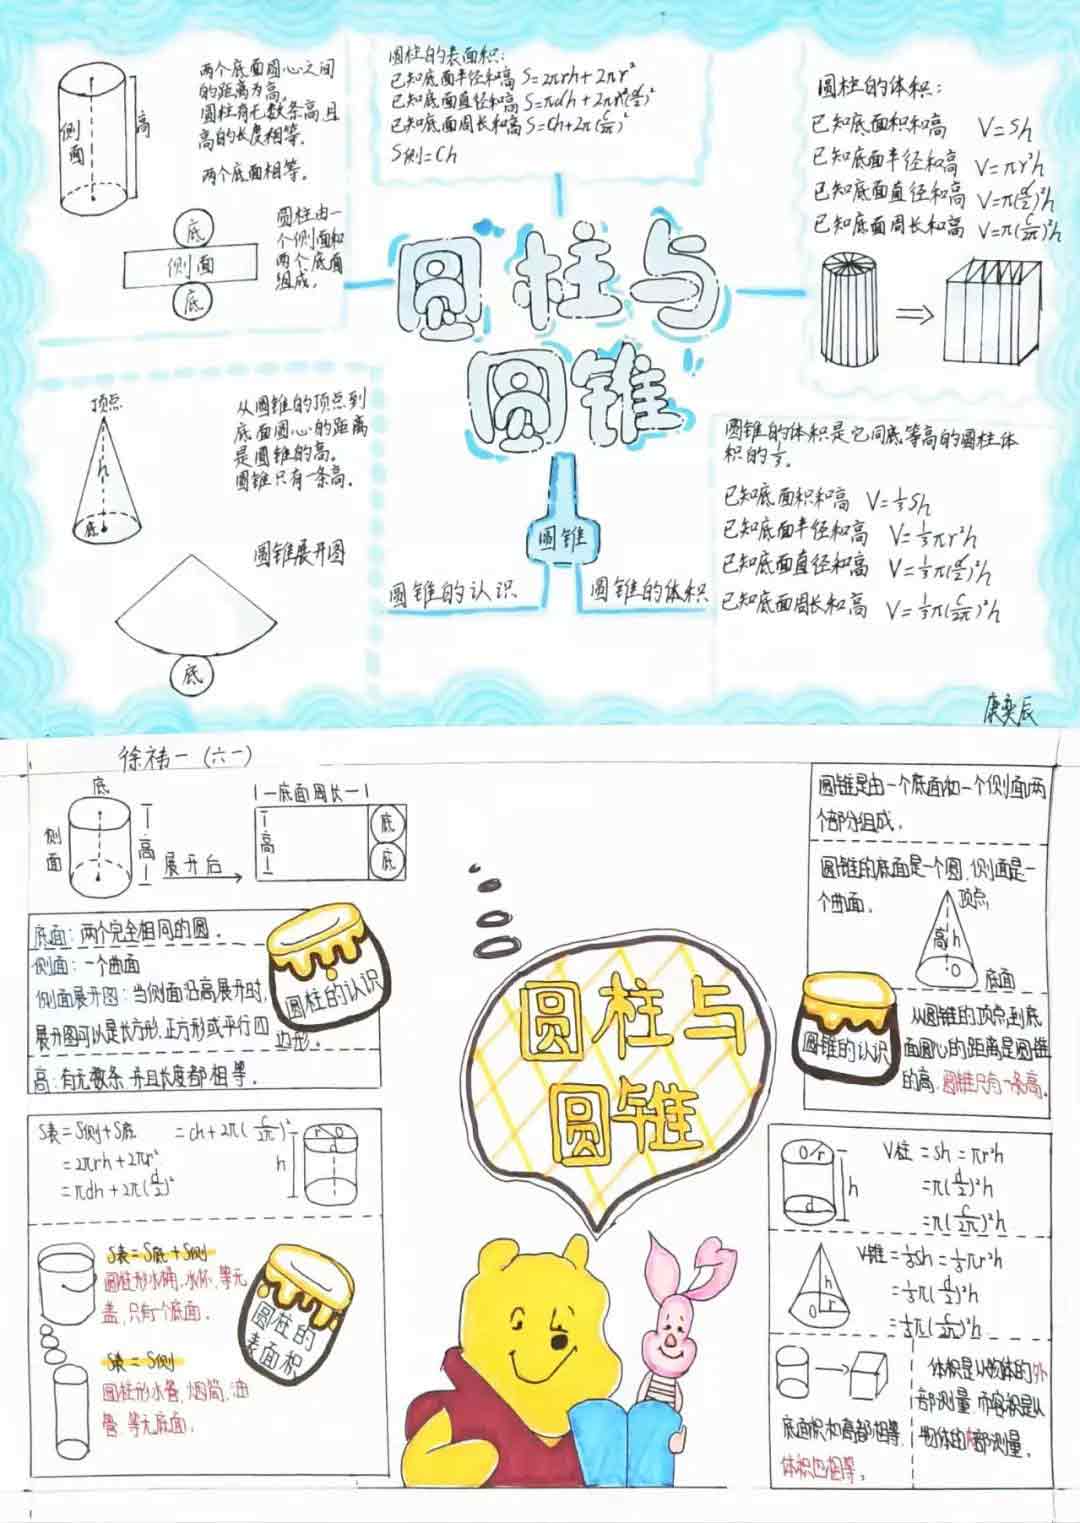 两个底面圆心之间
的距离为高。
圆柱有无数条高且
高的长度相等。
两个底面相等。
侧面
高
底
侧面
底
圆柱由一
个侧面和
两个底面
组成。
圆柱的表面积:
已知底面半径和高 S=2πrh+2πr²
已知底面直径和高 S=πdh+2π(d/2)²
已知底面周长和高 S=Ch+2π(C/2π)²
S侧=Ch
圆柱的体积:
已知底面积和高 V=Sh
已知底面半径和高 V=πr²h
已知底面直径和高 V=π(d/2)²h
已知底面周长和高 V=π(C/2π)²h
圆柱与
圆锥
顶点
h
底
从圆锥的顶点到
底面圆心的距离
是圆锥的高。
圆锥只有一条高。
圆锥展开图
底
圆锥
圆锥的认识
圆锥的体积
圆锥的体积是它同底等高的圆柱体
积的1/3。
已知底面积和高 V=1/3Sh
已知底面半径和高 V=1/3πr²h
已知底面直径和高 V=1/3π(d/2)²h
已知底面周长和高 V=1/3π(C/2π)²h
康奕辰
徐祎一(六一)
底
侧面
高
展开后
底面周长
高
底
底
底面:两个完全相同的圆。
侧面:一个曲面
侧面展开图:当侧面沿高展开时,
展开图可以是长方形,正方形或平行四
边形。
高:有无数条,并且长度都相等。
圆柱的认识
S表=S侧+S底 =ch+2π(C/2π)²
=2πrh+2πr²
=πdh+2π(d/2)²
h
r
d
S表=S底+S侧
圆柱形水桶,水杯,等无
盖,只有个底面。
S表=S侧
圆柱形水管,烟筒,油
管,等无底面。
圆柱的
表面积
圆柱与
圆锥
圆锥是由一个底面和一个侧面两
个部分组成。
圆锥的底面是一个圆,侧面是一
个曲面。
顶点
高h
O
底面
从圆锥的顶点到底
面圆心的距离是圆锥
的高,圆锥只有一条高。
圆锥的认识
O r
d
h
V柱=sh=πr²h
=π(d/2)²h
=π(C/2π)²h
h
O r
V锥=1/3sh=1/3πr²h
=1/3π(d/2)²h
=1/3π(C/2π)²h
底面积和高都相等,
体积也相等。
体积是从物体的外
部测量,而容积是从
物体的内部测量。